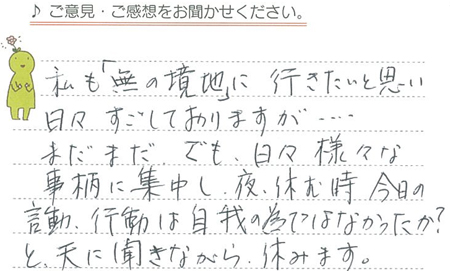 ♪ ご意見・ご感想をお聞かせください。
私も「無の境地」に 行きたいと思い
日々 すごしておりますが‥‥
まだまだ、でも、日々 様々な
事柄に集中し、夜、休む時 今日の
言動、行動は自我の為ではなかったか?
と、天に聞きながら、休みます。